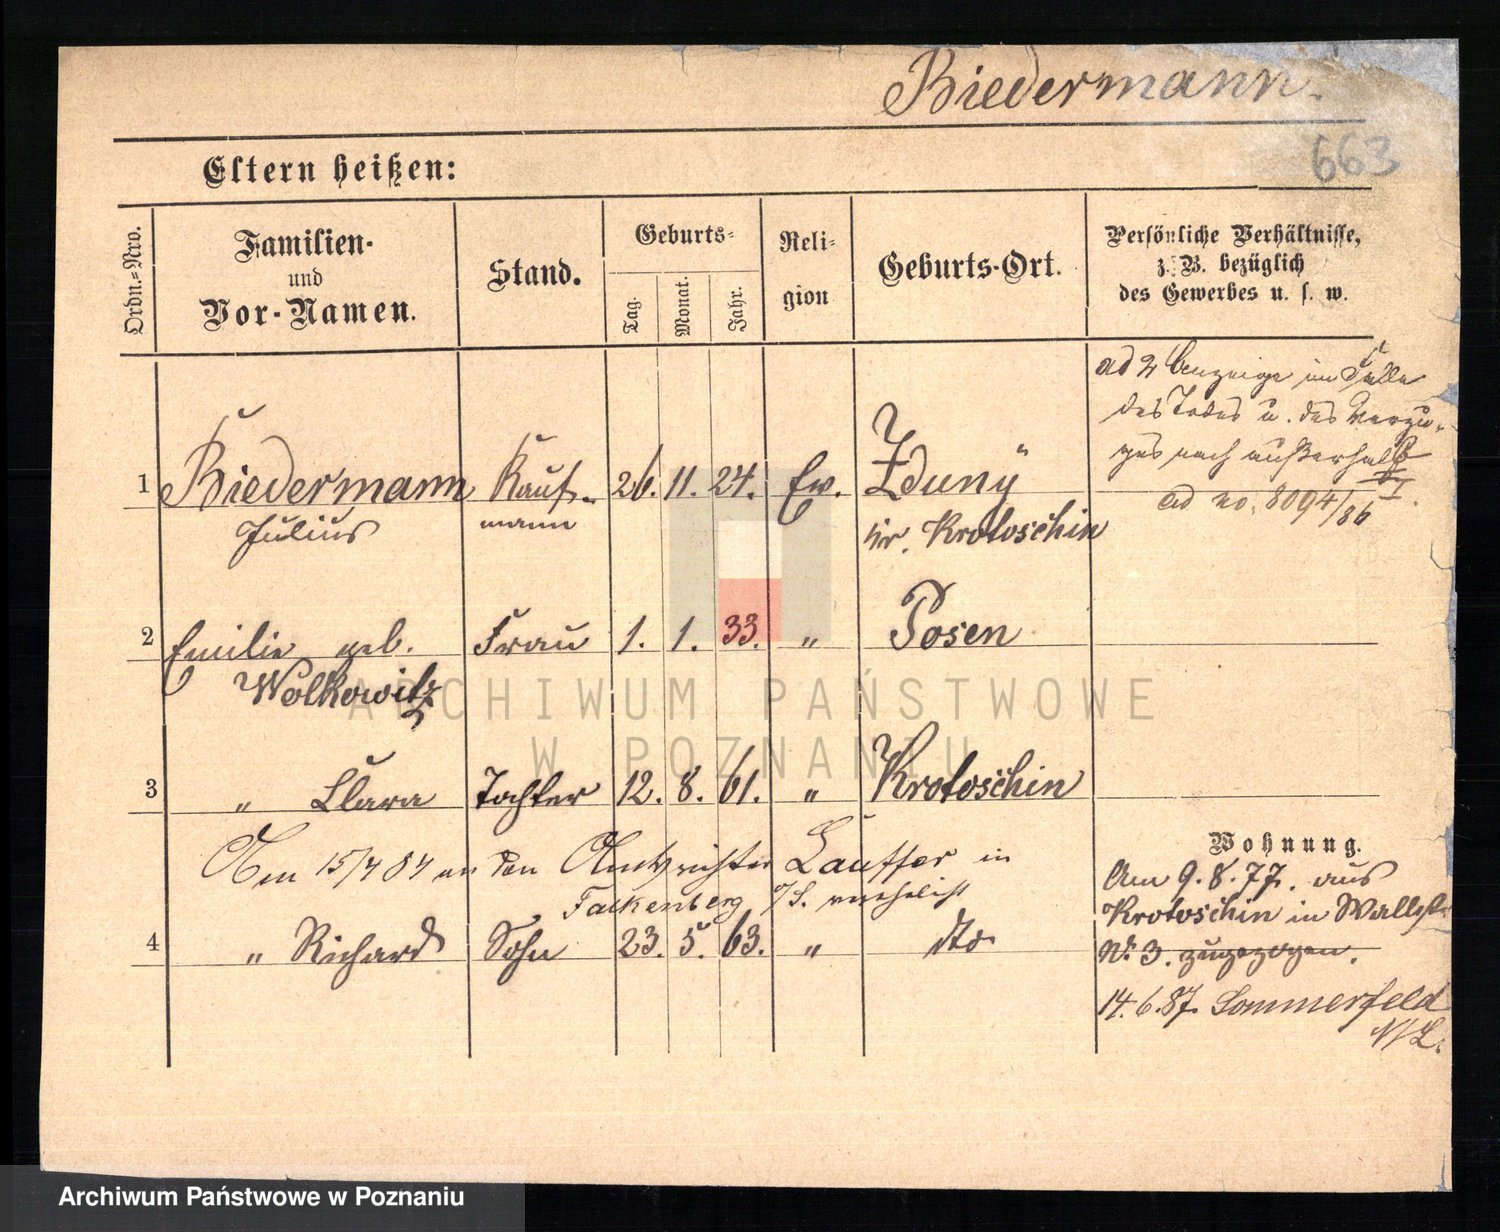 Biedermann.
663
Eltern heißen:
Ordn.-Nro.
Familien-
und
Vor-Namen.
Stand.
Geburts-
Tag.
Monat.
Jahr.
Reli-
gion
Geburts-Ort.
Persönliche Verhältnisse,
z. B. bezüglich
des Gewerbes u. s. w.
ad 2 Anzeige im Falle
des Todes u. des Verzu-
ges nach außerhalb
ad no. 8094/86 I.
1 Biedermann Kauf- 26. 11. 24. Ev. Zduny
Julius mann Kr. Krotoschin
2 Emilie geb. Frau 1. 1. 33. " Posen
Wolkowitz
ARCHIWUM PAŃSTWOWE
W POZNANIU
3 " Clara Tochter 12. 8. 61. " Krotoschin
Am 15/4 84 an den Amtsrichter Lauffer in
Falkenberg O/S. verehelicht
4 " Richard Sohn 23. 5. 63. " dto
Wohnung.
Am 9. 8. 77. aus
Krotoschin in Wallstr
Nr. 3. zugezogen.
14. 6. 87. Sommerfeld
N/L.
Archiwum Państwowe w Poznaniu